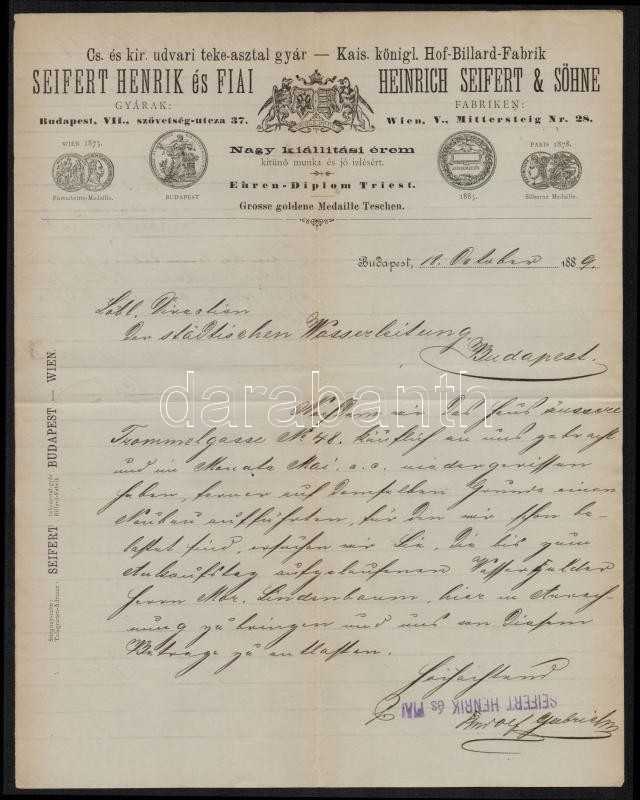 Cs. és kir. udvari teke-asztal gyár — Kais. königl. Hof-Billard-Fabrik
SEIFERT HENRIK és FIAI HEINRICH SEIFERT & SÖHNE
GYÁRAK: FABRIKEN:
Budapest, VII., szövetség-utcza 37. Wien, V., Mittersteig Nr. 28.
Nagy kiállitási érem
kitünő munka és jó izlésért.
Ehren-Diplom Triest.
Grosse goldene Medaille Teschen.
WIEN 1873.
Fortschritts-Medaille.
BUDAPEST
1885.
PARIS 1878.
Silberne Medaille.
Budapest, 18. October 1889.
Löbl. Direction
der städtischen Wasserleitung
Budapest.
Nachdem wir das Haus äussere
Trommelgasse No 48. käuflich an uns gebracht
und im Monate Mai a. c. niedergerissen
haben, ferner auf demselben Grunde einen
Neubau aufführten, für den wir schon be-
lastet sind, ersuchen wir Sie, die bis zum
Ankaufstag aufgelaufenen Wassergelder
Herrn Mor. Lindenbaum, hier in Anrech-
nung zu bringen und uns von diesem
Betrage zu entlasten.
Hochachtend
SEIFERT HENRIK és FIAI
Rudolf
Sürgöny-czim: Telegramm-Adresse: SEIFERT tekeasztal-gyár Billard-Fabrik BUDAPEST — WIEN.
darabanth